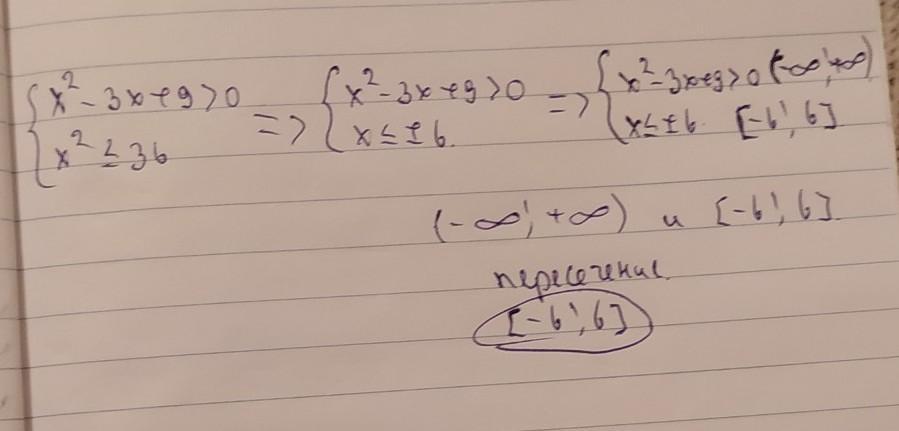 {x² - 3x + 9 > 0 => {x² - 3x + 9 > 0 => {x² - 3x + 9 > 0 (-∞; +∞)
{x² ≤ 36 {x ≤ ± 6. {x ≤ ± 6. [-6; 6]
(-∞; +∞) и [-6; 6]
пересечение
[-6; 6]